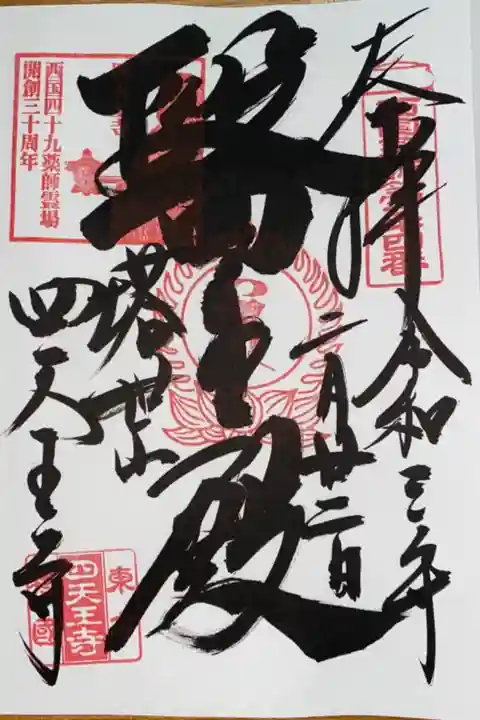 奉拝
令和三年
二月廿二日
醫王殿
塔世山
四天王寺
西国四十九薬師霊場
開創三十周年
四天王寺